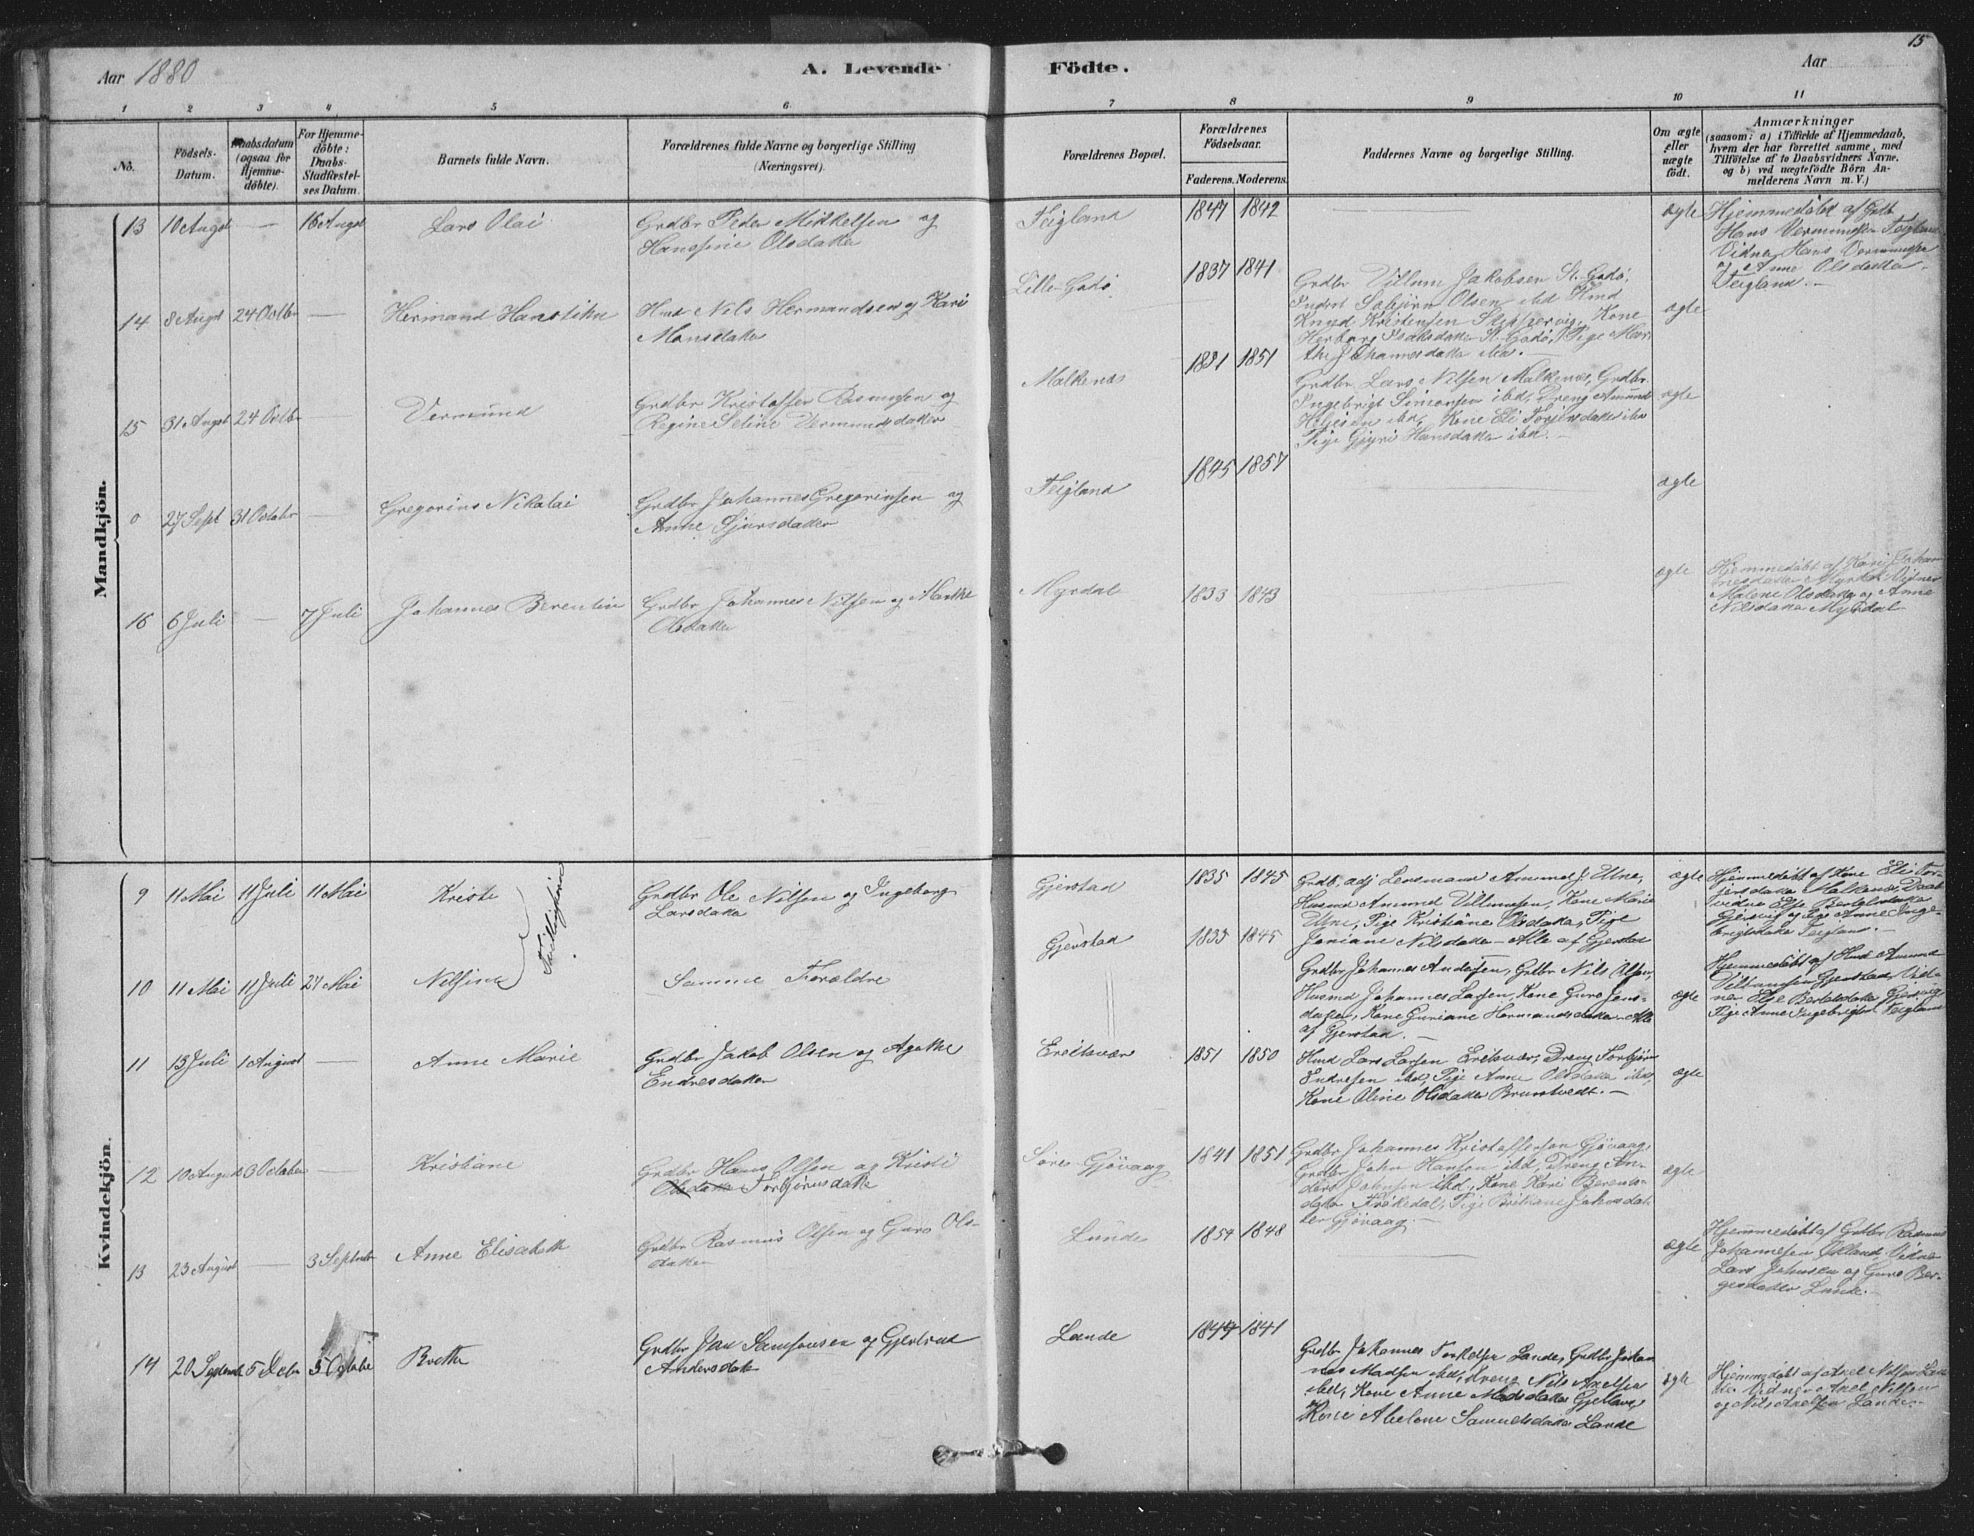 15
Aar 1880
A. Levende
Födte.
Aar
1 2 3 4 5 6 7 8 9 10 11
No.
Födsels-
Datum.
Daabsdatum
(ogsaa for
Hjemme-
döbte).
For Hjemme-
döbte:
Daabs-
Stadfæstel-
ses Datum.
Barnets fulde Navn.
Forældrenes fulde Navne og borgerlige Stilling
(Næringsvei).
Forældrenes Bopæl.
Forældrenes
Födselsaar.
Faderens. Moderens.
Faddernes Navne og borgerlige Stilling.
Om ægte
eller
uægte
födt.
Anmærkninger
(saasom: a) i Tilfælde af Hjemmedaab,
hvem der har forrettet samme, med
Tilföielse af to Daabsvidners Navne,
og b) ved uægtefödte Börn An-
melderens Navn m. V.)
Mandkjön.
13 10 Augst — 16 Augst Lars Olai
Grdbr Peder Mikkelsen og
Hansine Olsdatter
Feigland 1847 1842 ægte
Hjemmedöbt af Gdb
Hans Vermundsen Feigland
Vidner Hans Vermundsen
og Anne Olsdatter
Feigland. —
14 8 Augst 24 Octbr — Hermand Hanstikn
Hmd Nils Hermandsen og Kari
Monsdatter
Lille-Godö 1837 1841
Grdbr Villum Jakobsen St. Godö,
Inderst Sabjörn Olsen ibd Hmd
Knud Kristensen Skippervig, Kone
Herborg Isaksdatter St. Godö, Pige Mar-
the Johannesdatter ibd. —
ægte
15 31 Augst 24 Octbr — Vermund
Grdbr Kristoffer Rasmusen og
Regine Seline Vermundsdatter
Malkenæs 1831 1851
Grdbr Lars Nilsen Malkenæs, Grdbr
Ingebrigt Simonsen ibd, Dreng Amund
Helgesen ibd, Kone Eli Torjersdatter ibd
Pige Gjyri Hansdatter ibd. —
ægte
0 27 Sept 31 Octobr — Gregorius Nikolai
Grdbr Johannes Gregoriusen og
Anne Sjursdatter
Feigland 1845 1857 ægte
16 6 Juli — 7 Juli Johannes Berentin
Grdbr Johannes Nilsen og Marthe
Olsdatter
Myrdal 1833 1843 ægte
Hjemmedöbt af Kari Johan-
nesdatter Myrdal Vidner
Malene Olsdatter og Anne
Nilsdatter Myrdal
Kvindekjön.
9 11 Mai 11 Juli 11 Mai Kristi
Tvillingsöstre
Grdbr Ole Nilsen og Ingeborg
Larsdatter
Gjerstad 1835 1845
Grdb. adj Lensmand Ammon J Utne,
Husmd Amund Villumsen, Kone Marie
Utne, Pige Kristiane Olsdatter, Pige
Joriane Nilsdatter — Alle af Gjerstad
ægte
Hjemmedöbt af Kone Eli Tor-
jersdatter Malkenæs, Daab-
vidner Else Bertelsdatter
Gjersvig og Pige Anne Inge-
brigtsdatter Feigland. —
10 11 Mai 11 Juli 27 Mai Nilsine
Samme Forældre
Gjerstad 1835 1845
Grdbr Johannes Andersen, Grdbr Nils Olsen,
Husmd Johannes Larsen, Kone Guro Jens-
datter, Kone Guriane Hermandsdatter — Alle
af Gjerstad. —
ægte
Hjemmedöbt af Hmd Amund
Villumsen Gjerstad, Vid-
ner Else Bertelsdatter Gjersvig
Pige Anne Ingebrigtsd Feigland
11 15 Juli 1 August — Anne Marie
Grdbr Jakob Olsen og Agathe
Endresdatter
Ereksvær 1851 1850
Hmd Lars Larsen Ereksvær, Dreng Torbjörn
Endresen ibd, Pige Anne Olsdatter ibd,
Kone Oline Olsdatter Bruntvedt. —
ægte
12 10 August 3 October — Kristiane
Grdbr Hans Olsen og Kristi
Olsdatter Torbjörnsdatter
Söre-Gjövaag 1841 1851
Grdbr Johannes Kristoffersen Gjövaag,
Grdbr John Hansen ibd, Dreng An-
ders Johnsen ibd, Kone Kari Berents-
datter Frökedal, Pige Brithane Johnsdat-
ter Gjövaag. —
ægte
13 23 August — 3 Septbr Anne Elisabeth
Grdbr Rasmus Olsen og Guro Ols-
datter
Lunde 1854 1848 ægte
Hjemmedöbt af Grdbr Rasmus
Johannesen Økland. Vidner
Lars Johnsen og Guro Ber-
gesdatter Lunde. —
14 20 Septembr 5 Decbr 5 Octobe Brethe
Grdbr Jan Samsonsen og Gjertrud
Andersdatter
Lande 1844 1841
Grdbr Johannes Torkelsen Lande, Grdbr Johan-
nes Madsen ibd, Dreng Nils Axelsen
ibd, Kone Anne Madsdatter Gjetlave,
Kone Abelone Samuelsdatter Lande
ægte
Hjemmedöbt af Axel Nilsen Lan-
de. Vidner Axel Nilsen
og Nils Axelsen Lande. —